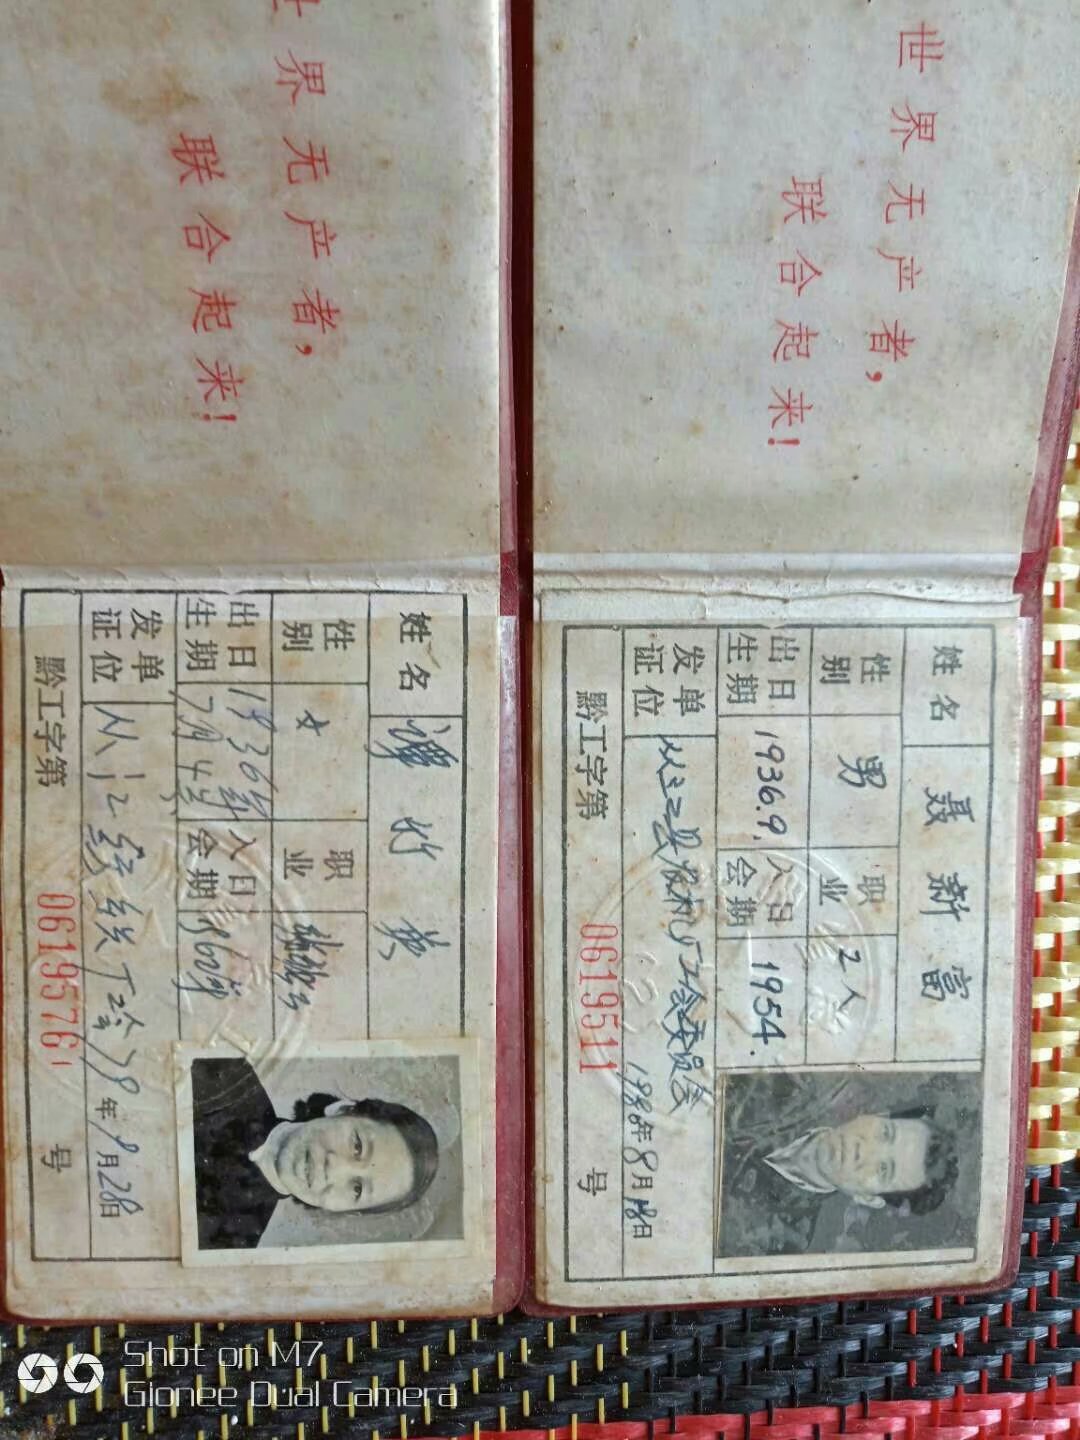 世界无产者,
联合起来!
姓名 聂新富
性别 男 职业 工人
出生日期 1936.9. 入会日期 1954.
发证单位 从江县农机厂工会委员会
1980年8月18日
黔工字第 0619511 号
世界无产者,
联合起来!
姓名 谭竹英
性别 女 职业
出生日期 1936年7月4日 入会日期
发证单位 从江 年9月28日
黔工字第 0619576 号
Shot on M7
Gionee Dual Camera